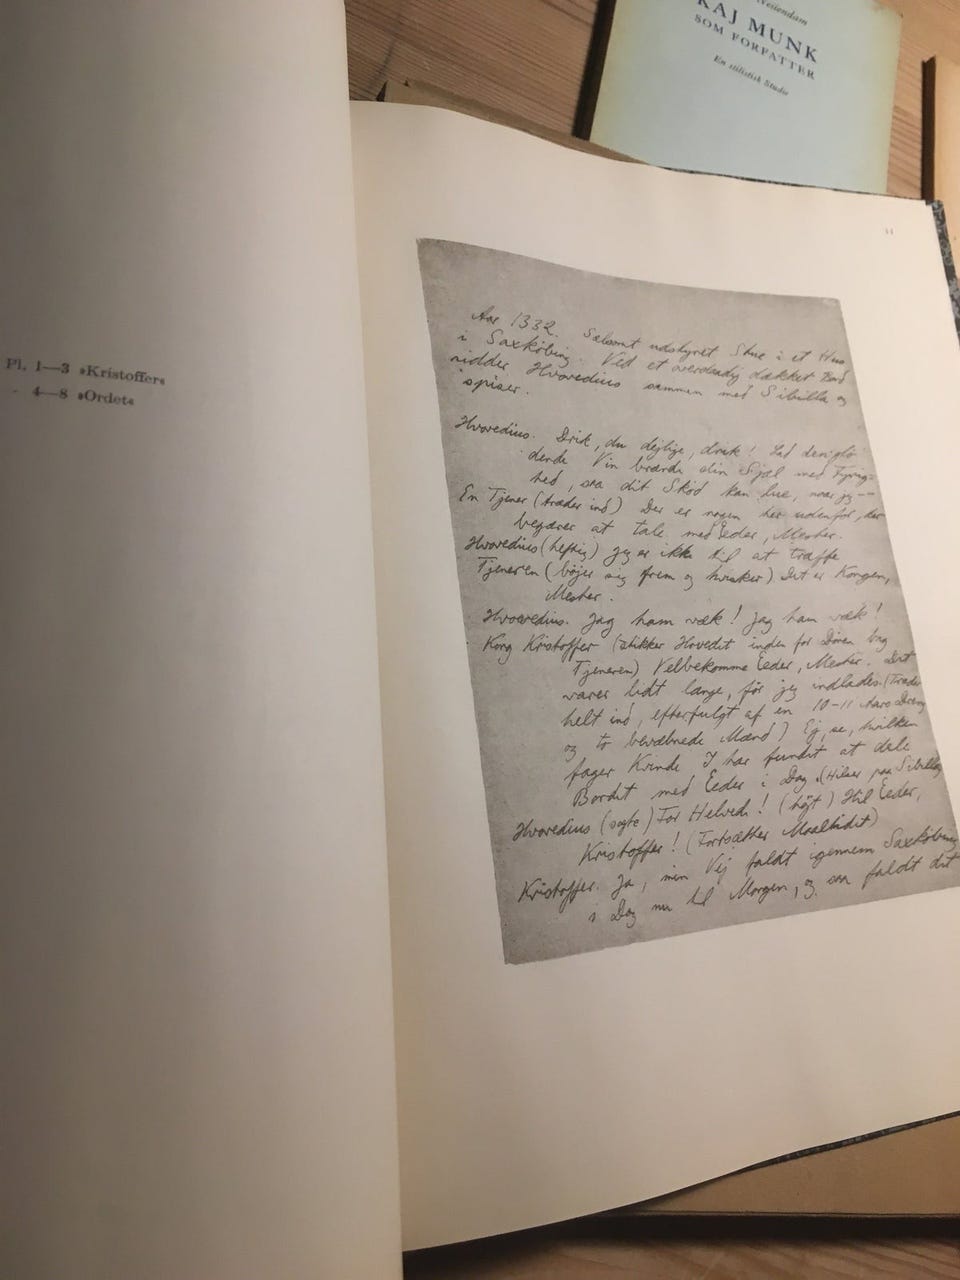 Westendam
KAJ MUNK
SOM FORFATTER
En stilistisk Studie
Pl. 1—3 »Kristoffer«
- 4—8 »Ordet«
Aar 1332. Sælsomt udstyret Stue i et Hus
i Saxkøbing. Ved et overdaadig dækket Bord
sidder Hvoredius sammen med Sibilla og
spiser.
Hvoredius. Drik, du dejlige, drik! Lad den glø-
dende Vin brænde din Sjæl med Fyrig-
hed, saa dit Skød kan lue, naar jeg --
En Tjener (træder ind) Der er nogen her udenfor, der
begærer at tale med Eeder, Mester.
Hvoredius (heftig) Jeg er ikke til at træffe
Tjeneren (bøjer sig frem og hvisker) Det er Kongen,
Mester.
Hvoredius. Jag ham væk! Jag ham væk!
Kong Kristoffer (stikker Hovedet inden for Døren bag
Tjeneren) Velbekomme Eeder, Mester. Det
varer lidt længe, før jeg indlades. (Træder
helt ind, efterfulgt af en 10-11 Aars Dreng
og to bevæbnede Mænd) Ej, se, hvilken
fager Kvinde I har fundet at dele
Bordet med Eeder i Dag. (Hilser paa Sibilla)
Hvoredius (sagte) For Helvede! (højt) Hil Eeder,
Kristoffer! (Fortsætter Maaltidet)
Kristoffer. Ja, min Vej faldt igennem Saxkøbing
i Dag nu til Morgen, og saa faldt det